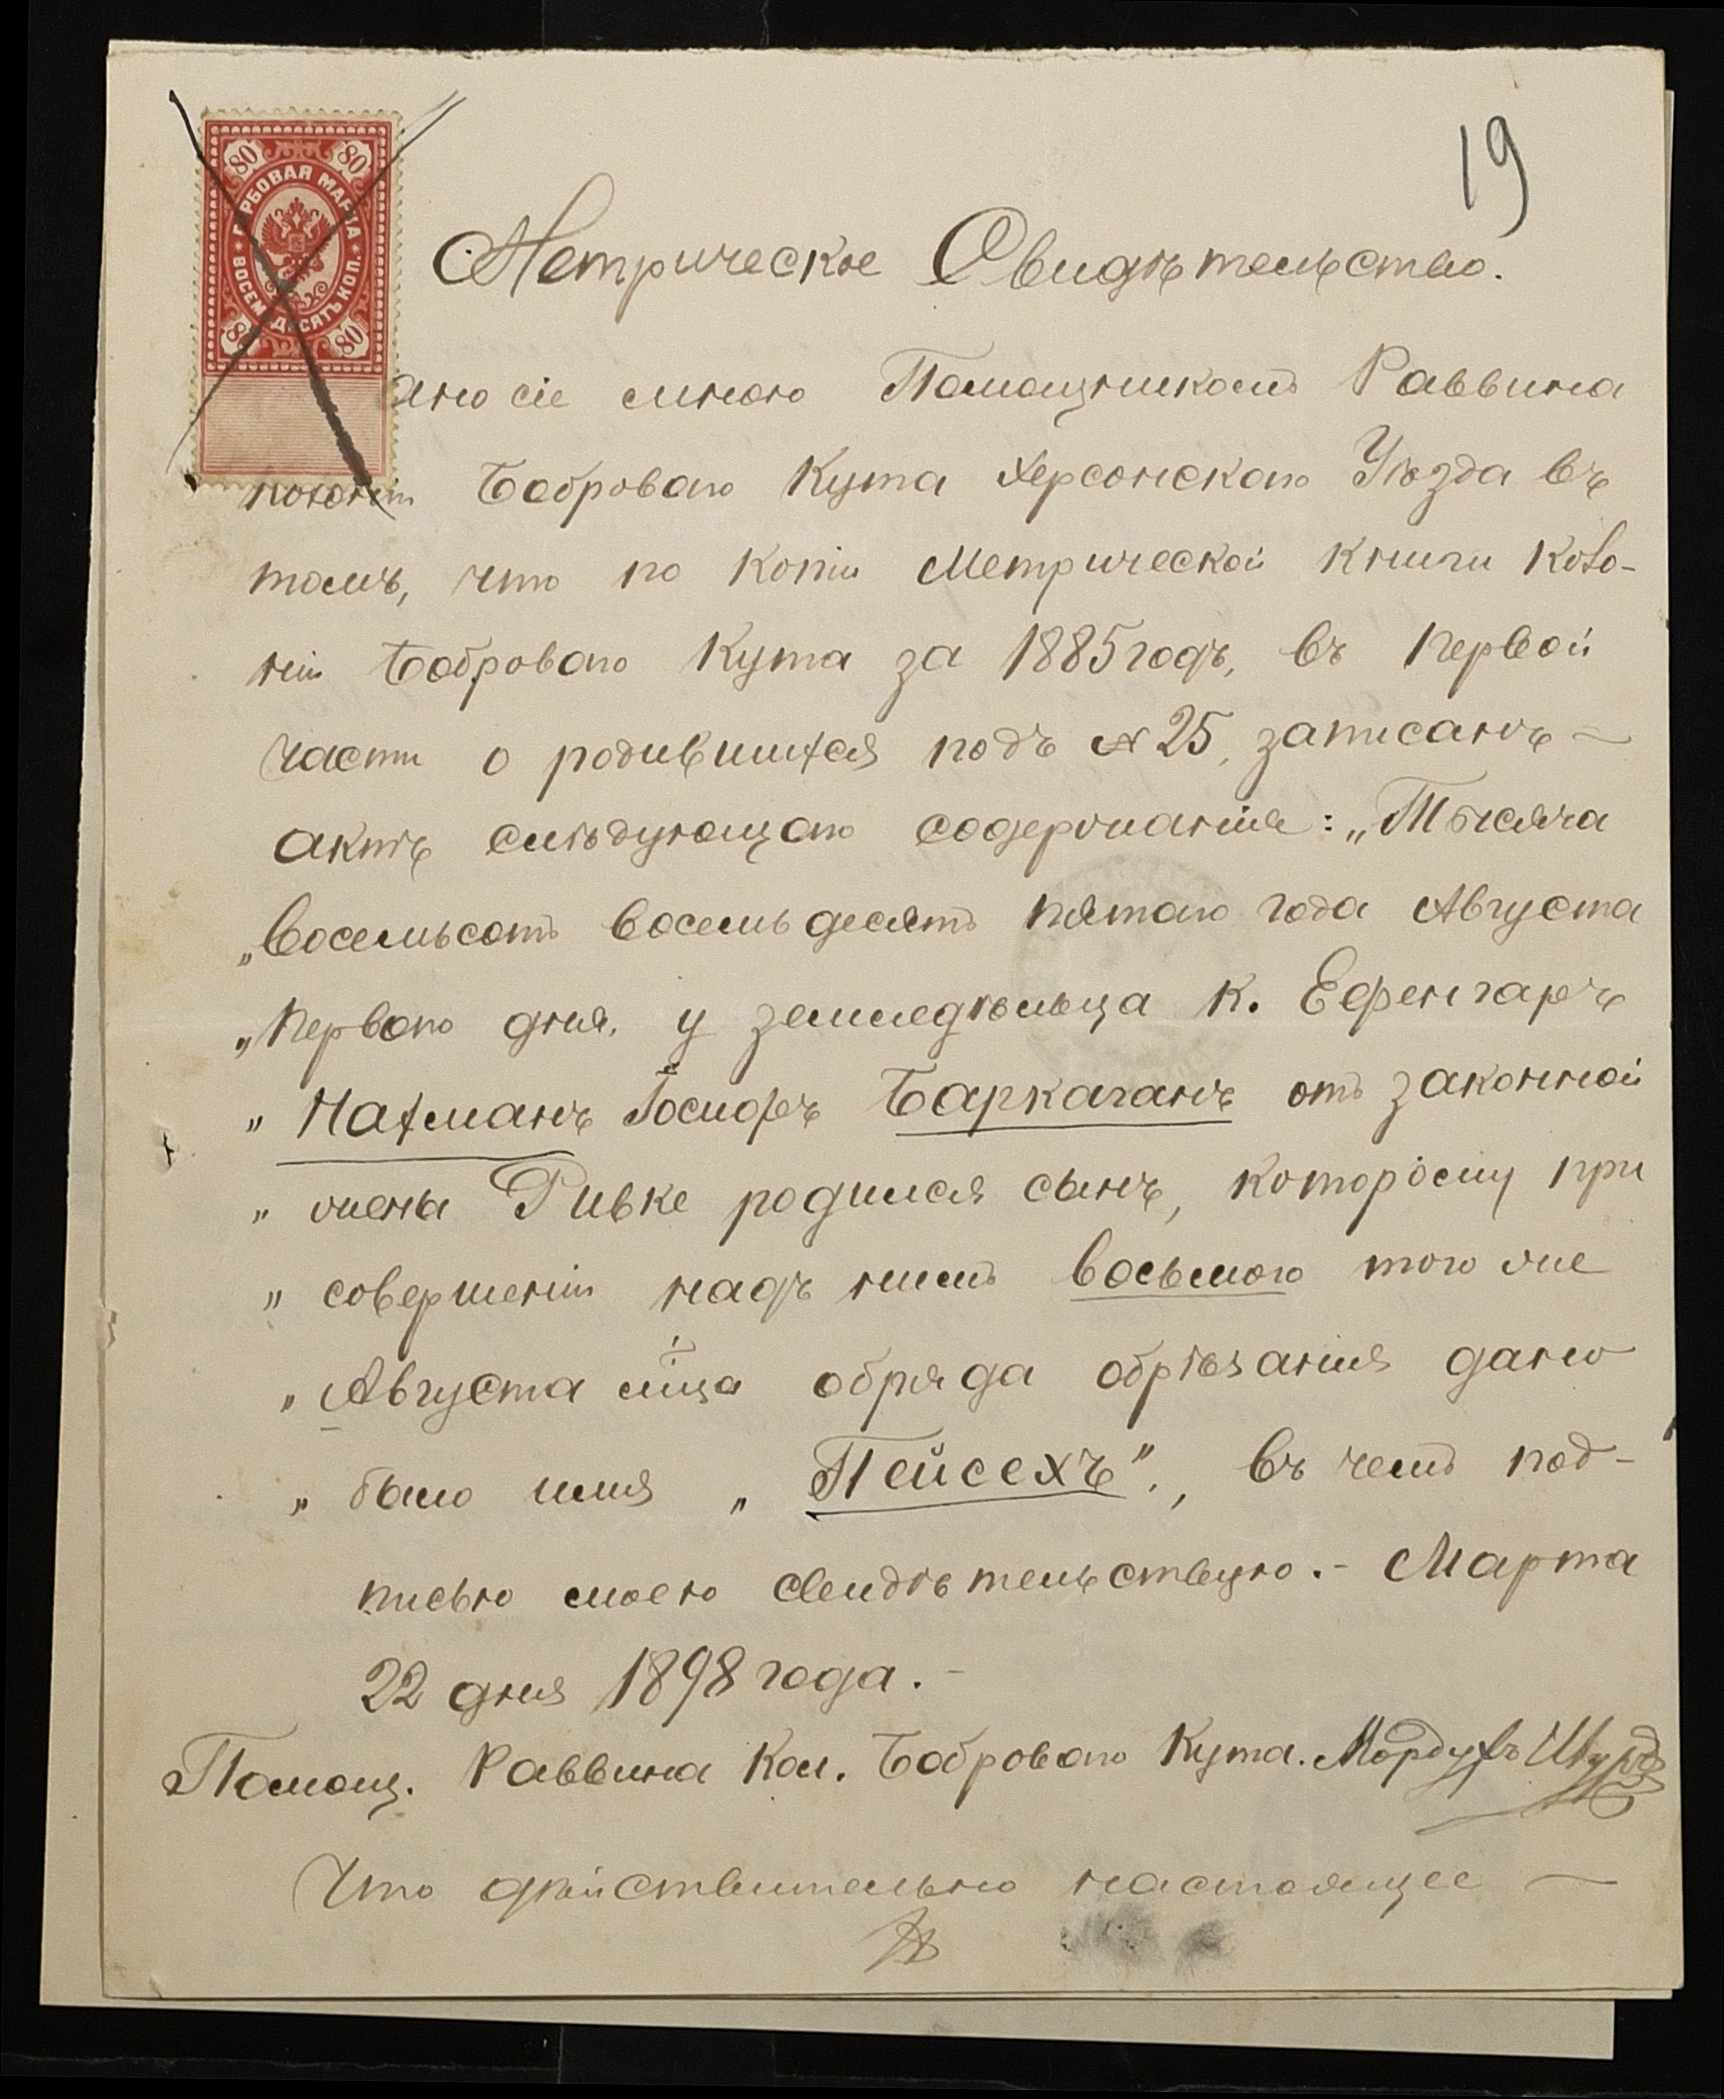 19
80 80
ГЕРБОВАЯ МАРКА
ВОСЕМЬДЕСЯТЪ КОП.
80 80
Метрическое Свидѣтельство.
ано сіе мною Помощникомъ Раввина
колоніи Боброваго Кута Херсонскаго Уѣзда въ
томъ, что по копіи Метрической книги коло-
ніи Боброваго Кута за 1885 годъ, въ первой
части о родившихся подъ № 25, записанъ —
актъ слѣдующаго содержанія: „Тысяча
„восемьсотъ восемьдесятъ пятаго года Августа
„перваго дня, у земледѣльца к. Ефенгаръ
„ Нахманъ Іосифъ Баркаганъ отъ законной
„ жены Ривке родился сынъ, которому при
„ совершеніи надъ нимъ восьмого того же
„ Августа мца обряда обрѣзанія дано
„ было имя „Пейсехъ“., въ чемъ под-
писью моею свидѣтельствую.- Марта
22 дня 1898 года.-
Помощ. Раввина Кол. Боброваго Кута. Мордухъ
Что дѣйствительно настоящее —